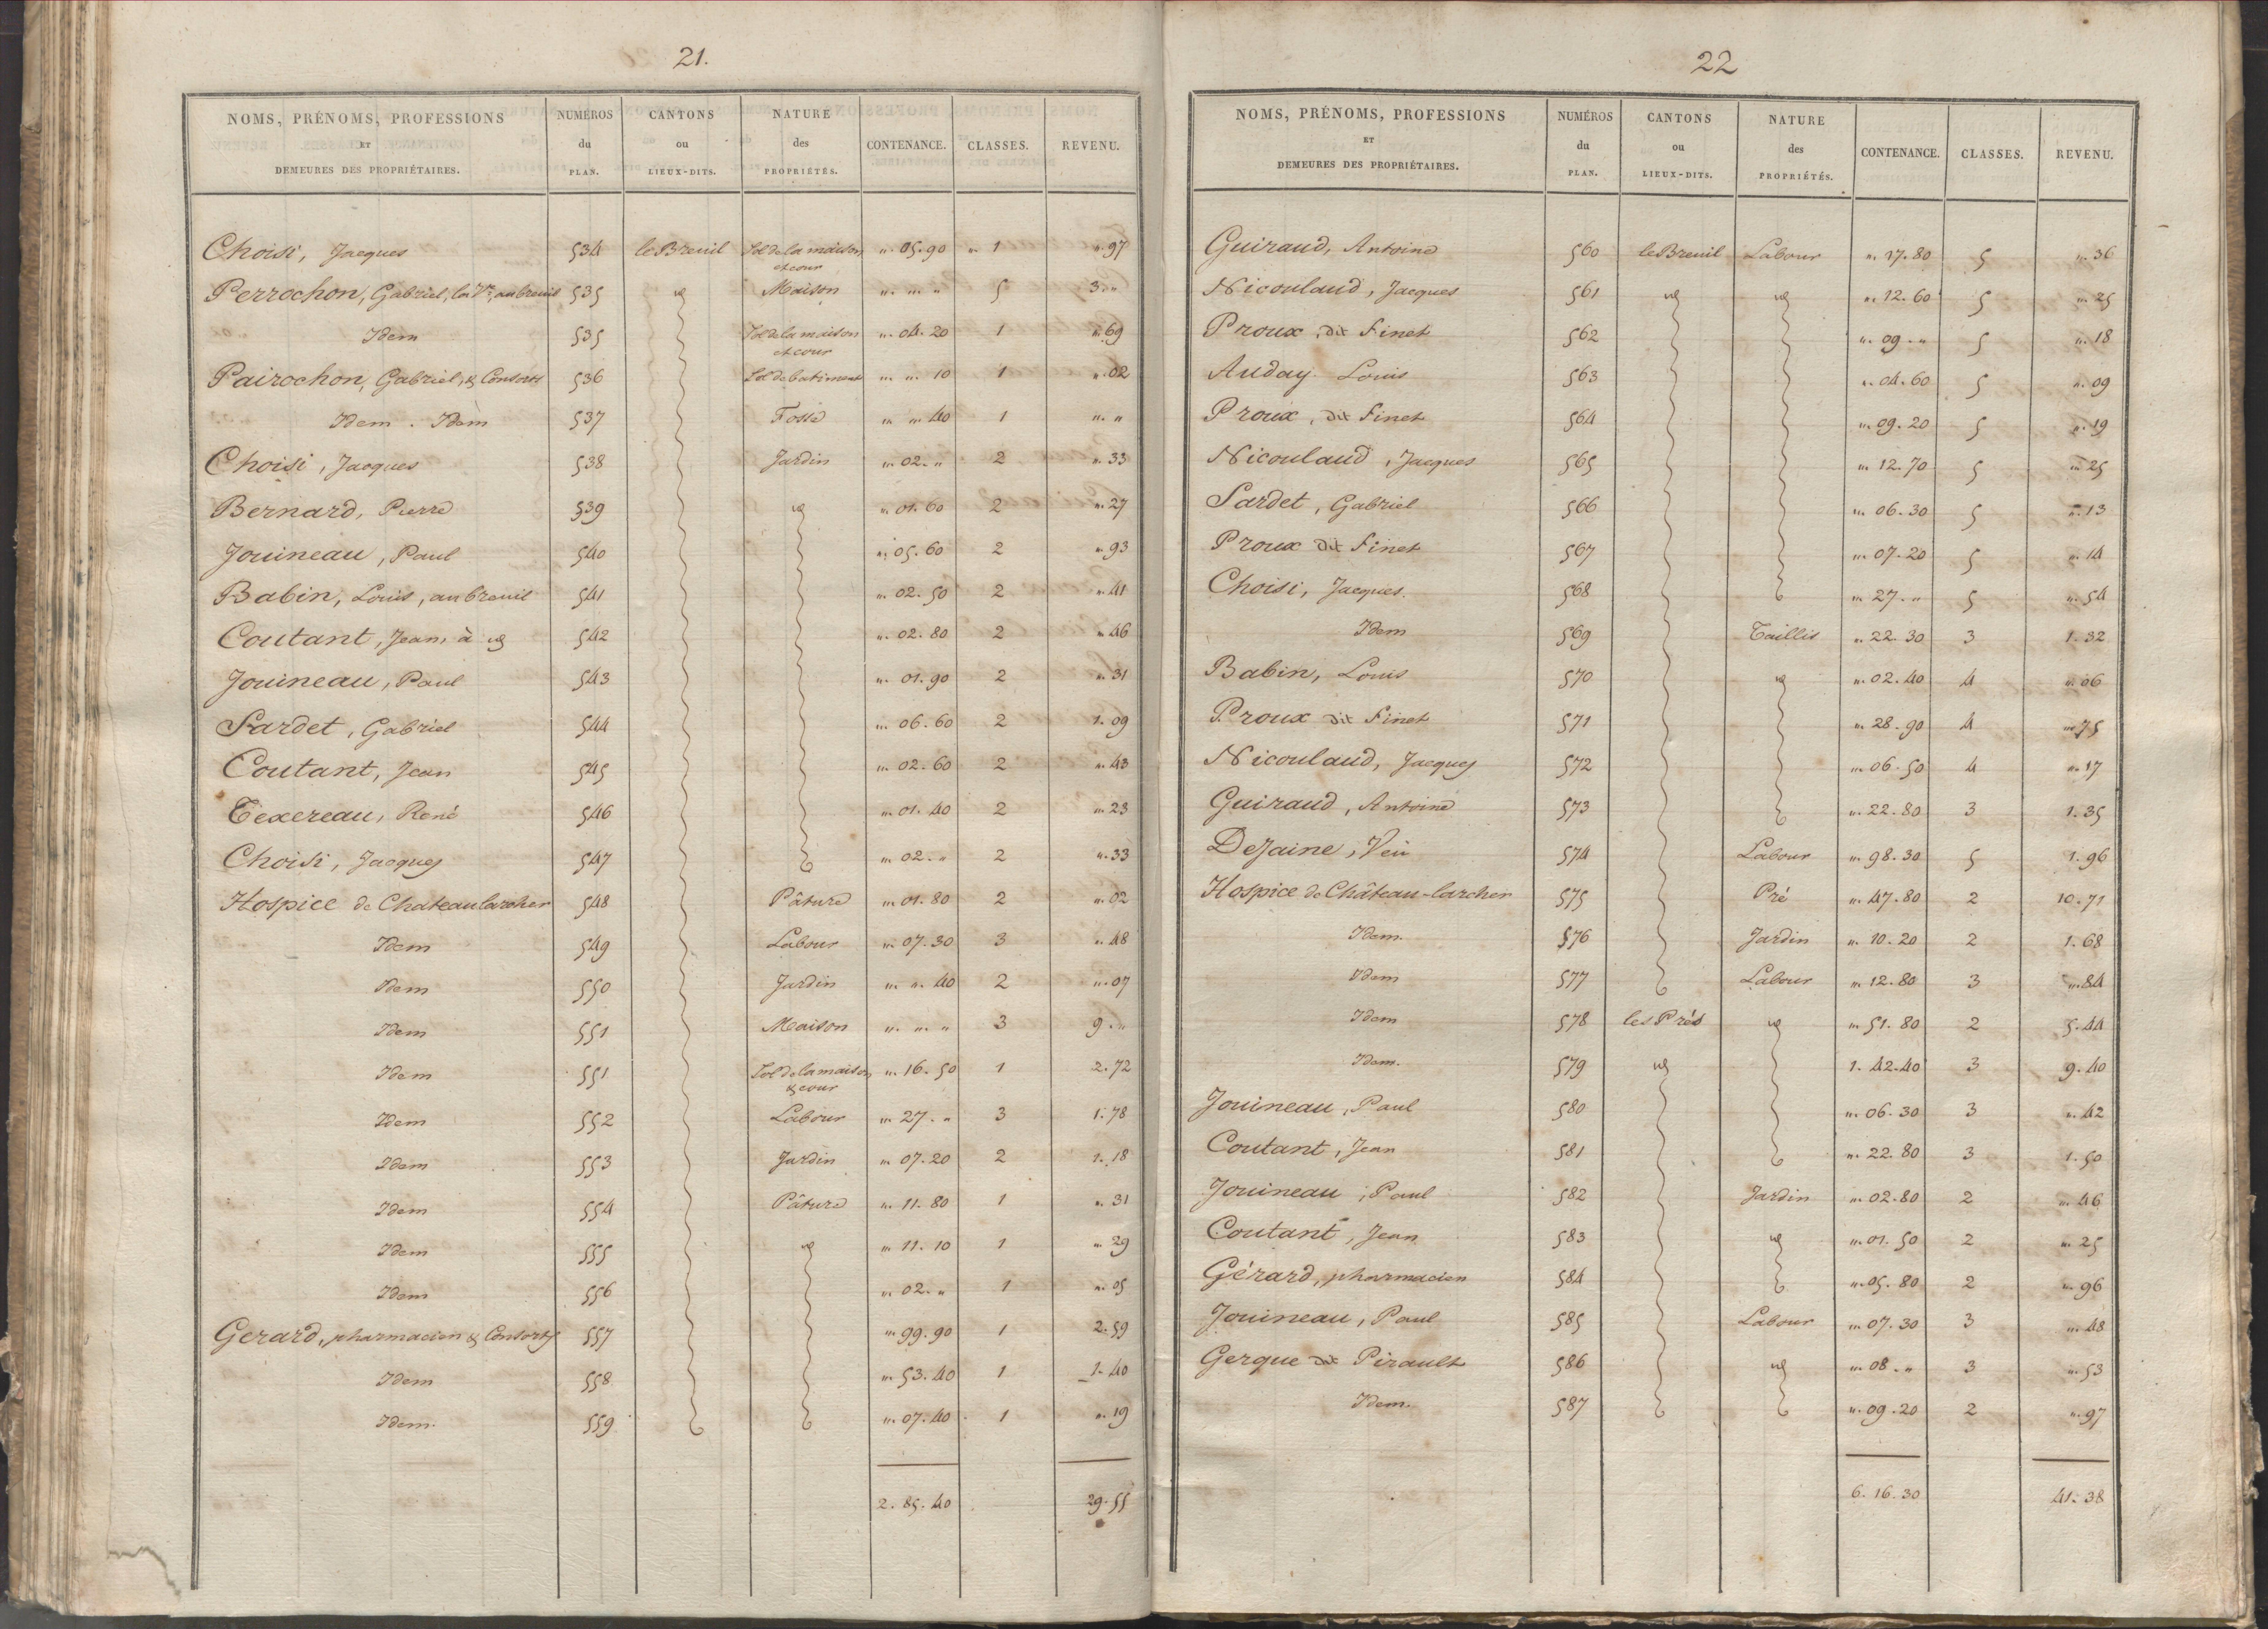 21.
NOMS, PRÉNOMS, PROFESSIONS ET DEMEURES DES PROPRIÉTAIRES. NUMÉROS du PLAN. CANTONS ou LIEUX-DITS. NATURE des PROPRIÉTÉS. CONTENANCE. CLASSES. REVENU.
Choisi, Jacques 534 le Breuil Sol de la maison et cour ". 05. 90 " 1 ". 97
Perrochon, Gabriel, la Ve, au breuil 535 id Maison ". ". " 5 3. "
Idem 535 Sol de la maison et cour ". 04. 20 1 ". 69
Pairochon, Gabriel, & Consorts 536 Sol de batiment ". ". 10 1 ". 02
Idem . Idem 537 Fossé ". ". 40 1 ". "
Choisi, Jacques 538 Jardin ". 02. " 2 ". 33
Bernard, Pierre 539 id ". 01. 60 2 ". 27
Jouineau, Paul 540 ". 05. 60 2 ". 93
Babin, Louis, au breuil 541 ". 02. 50 2 ". 41
Coutant, Jean, à id 542 ". 02. 80 2 ". 46
Jouineau, Paul 543 ". 01. 90 2 ". 31
Sardet, Gabriel 544 ". 06. 60 2 1. 09
Coutant, Jean 545 ". 02. 60 2 ". 43
Texereau, René 546 ". 01. 40 2 ". 23
Choisi, Jacques 547 ". 02. " 2 ". 33
Hospice de Chateaularcher 548 Pâture ". 01. 80 2 ". 02
Idem 549 Labour ". 07. 30 3 ". 48
Idem 550 Jardin ". ". 40 2 ". 07
Idem 551 Maison ". ". " 3 9. "
Idem 551 Sol de la maison & cour ". 16. 50 1 2. 72
Idem 552 Labour ". 27. " 3 1. 78
Idem 553 Jardin ". 07. 20 2 1. 18
Idem 554 Pâture ". 11. 80 1 ". 31
Idem 555 id ". 11. 10 1 ". 29
Idem 556 ". 02. " 1 ". 05
Gerard, pharmacien & Consorts 557 ". 99. 90 1 2. 59
Idem 558 ". 53. 40 1 1. 40
Idem. 559 ". 07. 40 1 ". 19
2. 85. 40 29. 55
22
NOMS, PRÉNOMS, PROFESSIONS ET DEMEURES DES PROPRIÉTAIRES. NUMÉROS du PLAN. CANTONS ou LIEUX-DITS. NATURE des PROPRIÉTÉS. CONTENANCE. CLASSES. REVENU.
Guiraud, Antoine 560 le Breuil Labour ". 17. 80 5 ". 36
Nicoulaud, Jacques 561 id id ". 12. 60 5 ". 25
Proux, dit Finet 562 ". 09. " 5 ". 18
Auday Louis 563 ". 04. 60 5 ". 09
Proux, dit Finet 564 ". 09. 20 5 ". 19
Nicoulaud, Jacques 565 ". 12. 70 5 ". 25
Sardet, Gabriel 566 ". 06. 30 5 ". 13
Proux dit Finet 567 ". 07. 20 5 ". 14
Choisi, Jacques. 568 ". 27. " 5 ". 54
Idem 569 Taillis ". 22. 30 3 1. 32
Babin, Louis 570 id ". 02. 40 4 ". 06
Proux dit Finet 571 ". 28. 90 4 ". 75
Nicoulaud, Jacques 572 ". 06. 50 4 ". 17
Guiraud, Antoine 573 ". 22. 80 3 1. 35
DeJaine, Veü 574 Labour ". 98. 30 5 1. 96
Hospice de Château-larcher 575 Pré ". 47. 80 2 10. 71
Idem. 576 Jardin ". 10. 20 2 1. 68
Idem 577 Labour ". 12. 80 3 ". 84
Idem 578 les Prés id ". 51. 80 2 5. 44
Idem. 579 id 1. 42. 40 3 9. 40
Jouineau, Paul 580 ". 06. 30 3 ". 42
Coutant, Jean 581 ". 22. 80 3 1. 50
Jouineau, Paul 582 Jardin ". 02. 80 2 ". 46
Coutant, Jean 583 id ". 01. 50 2 ". 25
Gérard, pharmacien 584 ". 05. 80 2 ". 96
Jouineau, Paul 585 Labour ". 07. 30 3 ". 48
Gerque dit Pirault 586 id ". 08. " 3 ". 53
Idem. 587 ". 09. 20 2 ". 97
6. 16. 30 41. 38